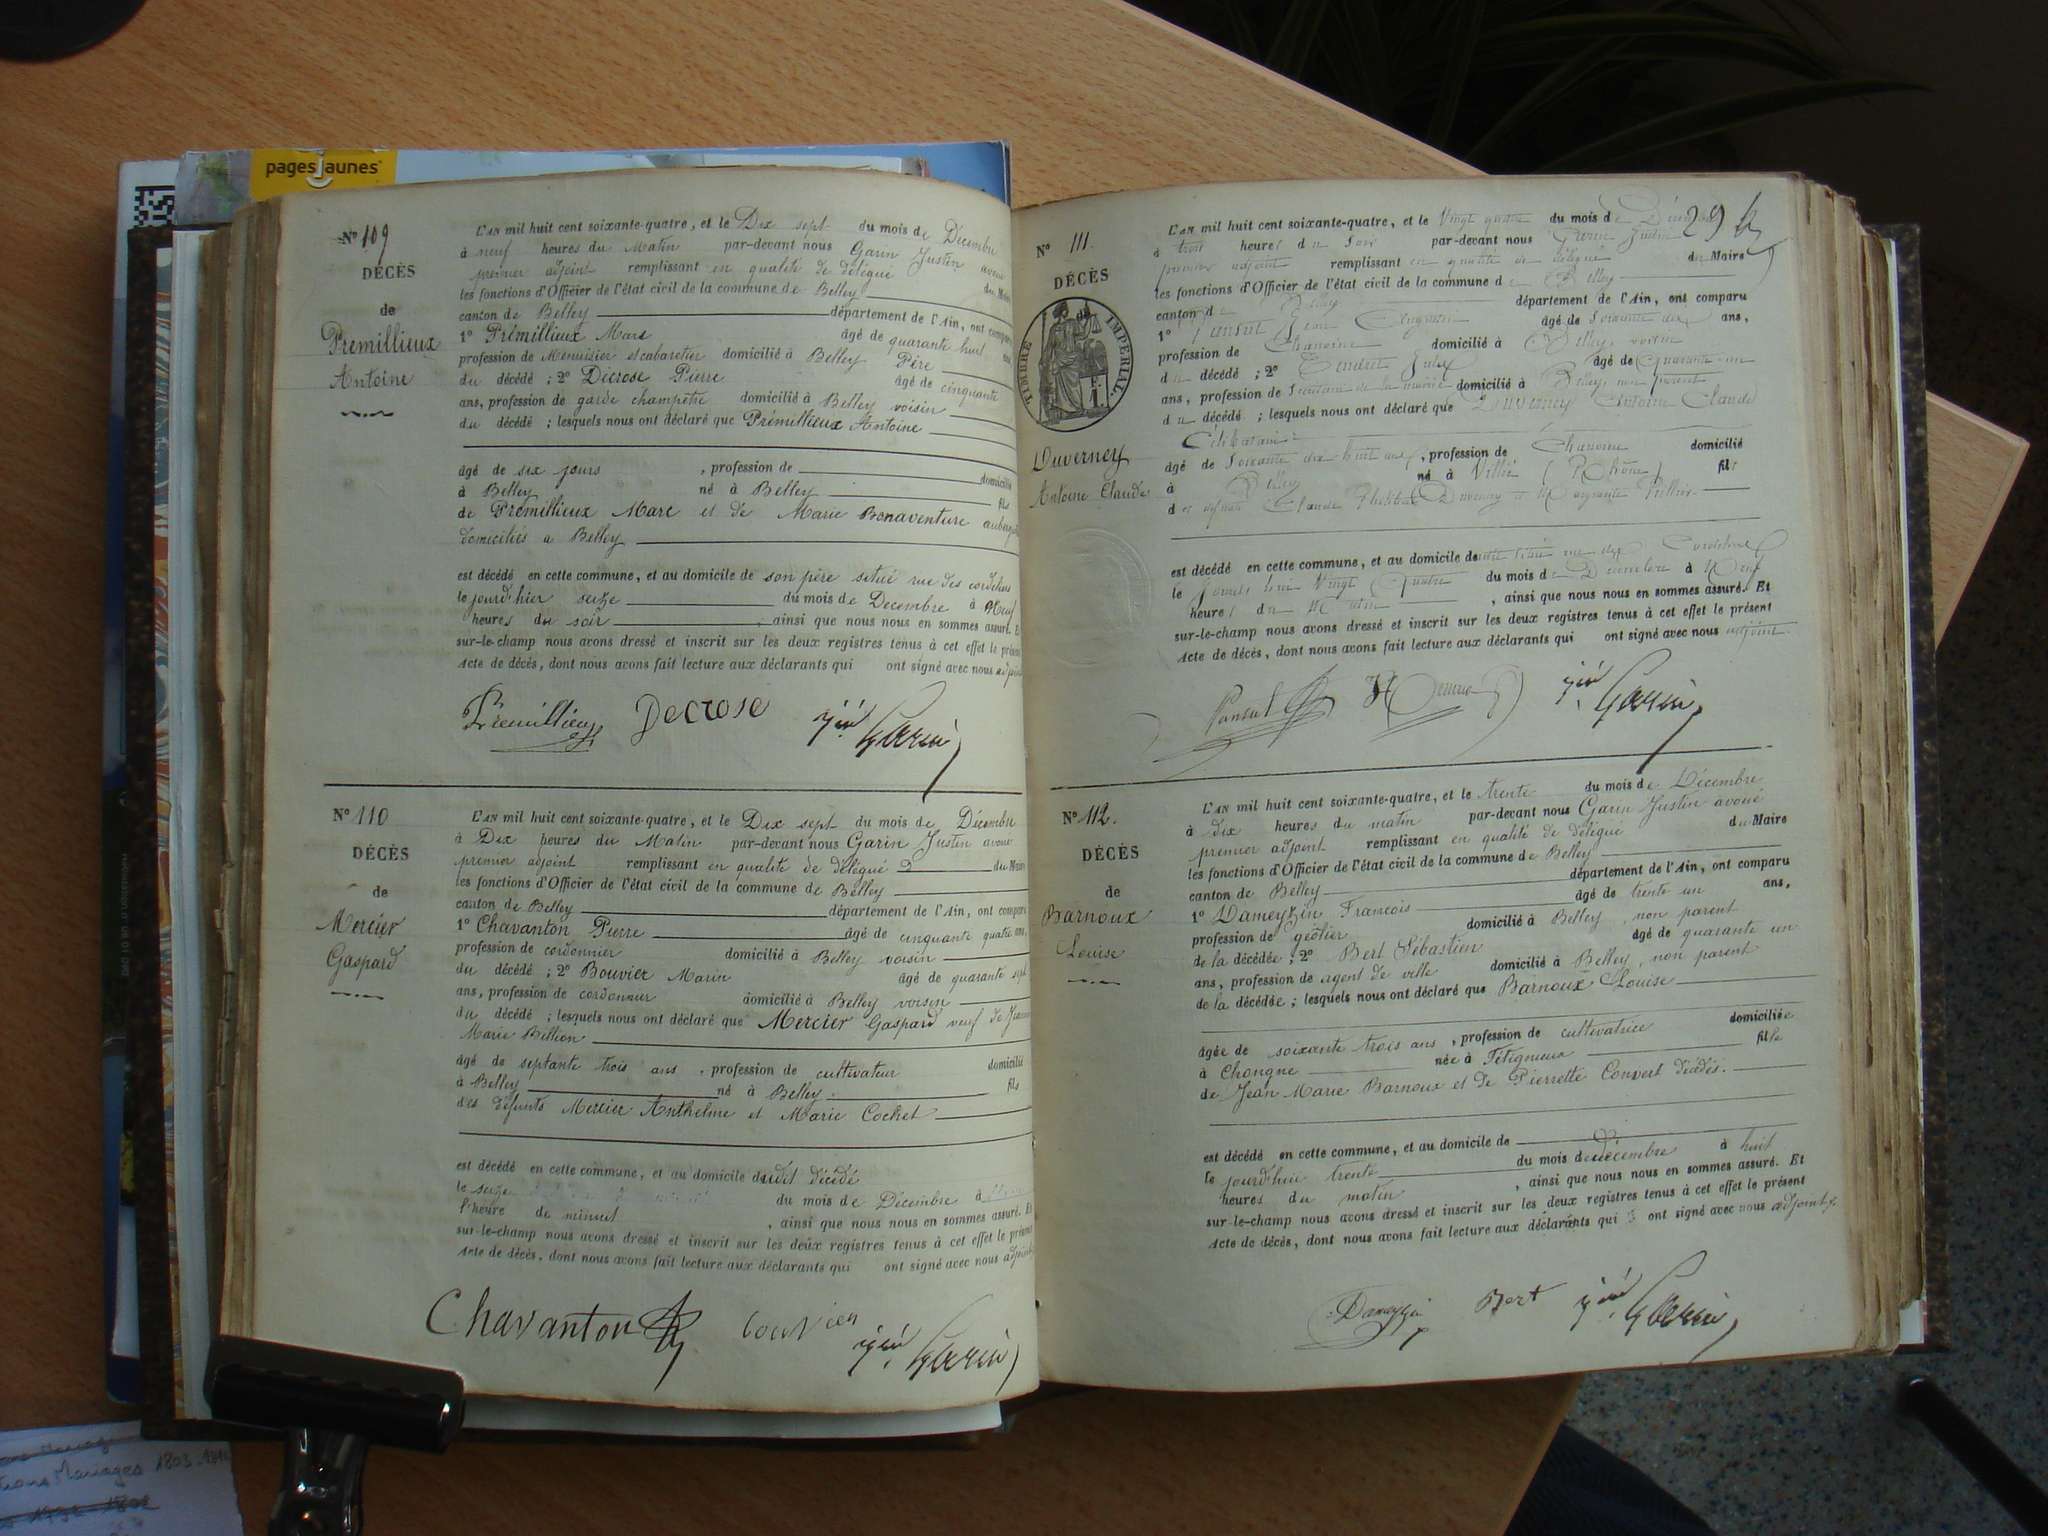 pagesjaunes
N° 109
DÉCÈS
de
Prémillieux
Antoine
L'AN mil huit cent soixante-quatre, et le Dix sept du mois de Décembre
à neuf heures du Matin par-devant nous Garin Justin avoué
premier adjoint remplissant en qualité de délégué du Maire
les fonctions d'Officier de l'état civil de la commune de Belley
canton de Belley département de l'Ain, ont comparu
1° Prémillieux Marc âgé de quarante huit ans
profession de Menuisier et cabaretier domicilié à Belley Père
du décédé ; 2° Décrose Pierre âgé de cinquante
ans, profession de garde champêtre domicilié à Belley voisin
du décédé ; lesquels nous ont déclaré que Prémillieux Antoine
âgé de six jours , profession de domicilié
à Belley né à Belley fils
de Prémillieux Marc et de Marie Bonaventure
domiciliés a Belley
est décédé en cette commune, et au domicile de son père situé rue des cordeliers
le jourd'hier seize du mois de Decembre à Neuf
heures du soir , ainsi que nous nous en sommes assuré. Et
sur-le-champ nous avons dressé et inscrit sur les deux registres tenus à cet effet le présent
acte de décès, dont nous avons fait lecture aux déclarants qui ont signé avec nous adjoint
Prémillieux Decrose Garin
N° 110
DÉCÈS
de
Mercier
Gaspard
L'AN mil huit cent soixante-quatre, et le Dix sept du mois de Décembre
à Dix heures du Matin par-devant nous Garin Justin avoué
premier adjoint remplissant en qualité de délégué du Maire
les fonctions d'Officier de l'état civil de la commune de Belley
canton de Belley département de l'Ain, ont comparu
1° Chavanton Pierre âgé de cinquante quatre ans,
profession de cordonnier domicilié à Belley voisin
du décédé ; 2° Bouvier Marin âgé de quarante sept
ans, profession de cordonnier domicilié à Belley voisin
du décédé ; lesquels nous ont déclaré que Mercier Gaspard veuf de Jeanne
Marie Billion
âgé de septante trois ans , profession de cultivateur domicilié
à Belley né à Belley fils
des défunts Mercier Anthelme et Marie Cochet
est décédé en cette commune, et au domicile dudit décédé
le seize du mois de Décembre à
l'heure de minuit , ainsi que nous nous en sommes assuré. Et
sur-le-champ nous avons dressé et inscrit sur les deux registres tenus à cet effet le présent
acte de décès, dont nous avons fait lecture aux déclarants qui ont signé avec nous adjoint
Chavanton Garin
29
N° 111.
DÉCÈS
de
TIMBRE IMPÉRIAL.
F.
1.
Duverney
Antoine Claude
L'AN mil huit cent soixante-quatre, et le Vingt quatre du mois de Décembre
à trois heures du Soir par-devant nous Garin Justin
premier adjoint remplissant en qualité de délégué du Maire
les fonctions d'Officier de l'état civil de la commune de Belley
canton de Belley département de l'Ain, ont comparu
1° Pansut Jean âgé de Soixante dix ans,
profession de Chanoine domicilié à Belley, voisin
du décédé ; 2° Tendret Jules âgé de Quarante un
ans, profession de Secrétaire de la mairie domicilié à Belley, non parent
du décédé ; lesquels nous ont déclaré que Duverney Antoine Claude
Célibataire
âgé de Soixante dix huit ans, profession de Chanoine domicilié
à Belley né à Villié (Rhône) fils
des défunts Claude Philibert Duverney et Marguerite
est décédé en cette commune, et au domicile de
le Jourd'hui Vingt Quatre du mois de Décembre à Neuf
heures du Matin , ainsi que nous nous en sommes assuré. Et
sur-le-champ nous avons dressé et inscrit sur les deux registres tenus à cet effet le présent
acte de décès, dont nous avons fait lecture aux déclarants qui ont signé avec nous adjoint.
Pansut Garin
N° 112.
DÉCÈS
de
Barnoux
Louise
L'AN mil huit cent soixante-quatre, et le trente du mois de Décembre
à dix heures du matin par-devant nous Garin Justin avoué
premier adjoint remplissant en qualité de délégué du Maire
les fonctions d'Officier de l'état civil de la commune de Belley
canton de Belley département de l'Ain, ont comparu
1° Dameyzin Francois âgé de trente un ans,
profession de géôlier domicilié à Belley, non parent
de la décédée ; 2° Bert Sébastien âgé de quarante un
ans, profession de agent de ville domicilié à Belley, non parent
de la décédée ; lesquels nous ont déclaré que Barnoux Louise
âgée de soixante trois ans , profession de cultivatrice domiciliée
à Chongne née à Fétigneux fille
de Jean Marie Barnoux et de Pierrette Convert décédés.
est décédé en cette commune, et au domicile de
le jourd'hui trente du mois de décembre à huit
heures du matin , ainsi que nous nous en sommes assuré. Et
sur-le-champ nous avons dressé et inscrit sur les deux registres tenus à cet effet le présent
acte de décès, dont nous avons fait lecture aux déclarants qui ont signé avec nous adjoint.
Dameyzin Bert Garin
Mariages 1803